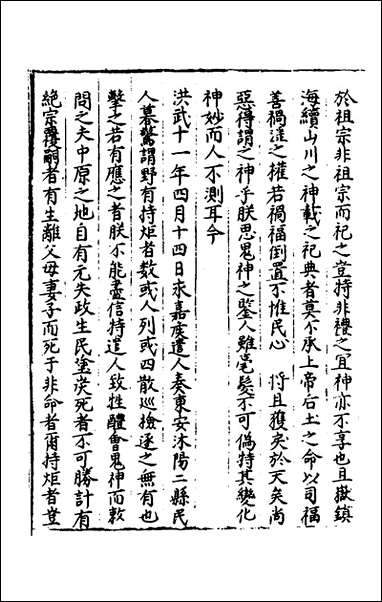 於祖宗非祖宗而祀之豈特非禮之冝神亦不享也且嶽鎮
海瀆山川之神載之祀典者莫不承上帝后土之命以司福
善禍淫之權若禍福倒置不惟民心 将且獲戾於天矣尚
惡得謂之神乎朕思鬼神之鑒人雖毫髮不可偽特其變化
神妙而人不測耳今
洪武十一年四月十四日宋嘉度遣人奏東安沭陽二縣民
人暮驚謂野有持炬者数或人列或四散巡檢逐之無有也
擊之若有應之者朕不能盡信特遣人致牲醴會鬼神而敕
問之夫中原之地自有元失政生民塗炭死者不可勝計有
絶宗覆嗣者有生離父母妻子而死于非命者爾持炬者豈